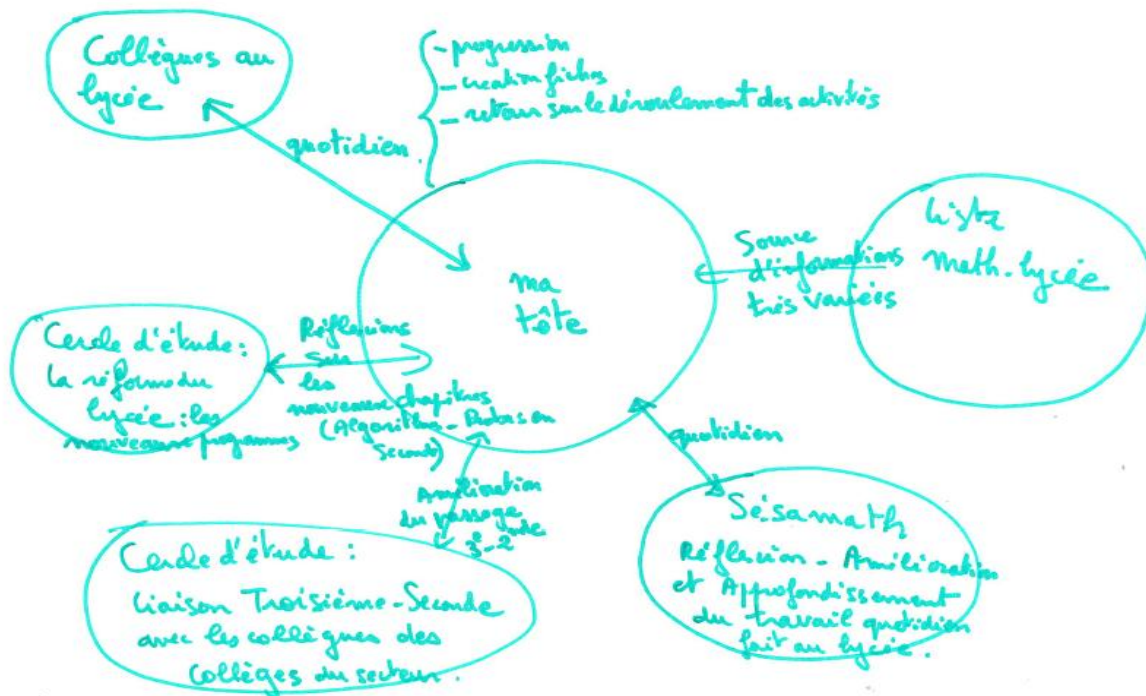 Collègues au
lycée
- progression
- création fiches
- retour sur le déroulement des activités
quotidien.
ma
tête
Source
d'informations
très variées
Liste
Math-lycée
Cercle d'étude :
la réforme du
lycée : les
nouveaux programmes
Réflexions
sur
les
nouveaux chapitres
(Algorithme - Probas en
Seconde)
Amélioration
du passage
3e-2nde
Cercle d'étude :
Liaison Troisième-Seconde
avec les collègues des
collèges du secteur.
quotidien
Sésamath
Réflexion - Amélioration
et Approfondissement
du travail quotidien
fait au lycée.